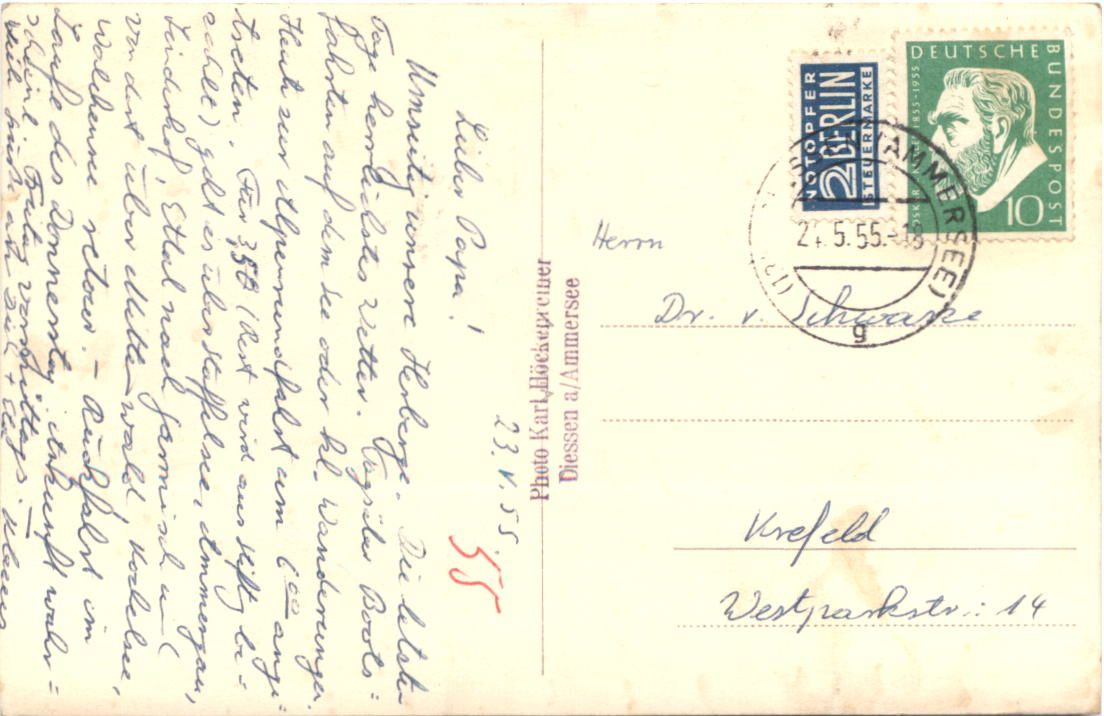 Lieber Papa!
Umseitig unsere Herberge. Die letzten
Tage herrlichstes Wetter. Täglich Boots=
fahrten auf dem See oder kl. Wanderungen.
Heute zur Alpenrundfahrt um 6 00 ange=
treten. Für 3,50 (Rest wird aus
zahlt) geht es über Staffelsee, Ammergau,
Linderhof, Ettal nach Garmisch u
von dort über Mittenwald, Kochelsee,
Walchensee retour. – Rückfahrt im
Laufe des Donnerstag. Ankunft wahr=
scheinl. Freitag vormittags.
23.V.55
55
Photo Karl Höckenreiner
Diessen a/Ammersee
NOTOPFER
2 BERLIN
STEUERMARKE
DEUTSCHE BUNDESPOST
OSKAR 1855-1955
10
AMMERSEE)
5.55.-18
g
Herrn
Dr. v. Schwarze
Krefeld
Westparkstr.: 14